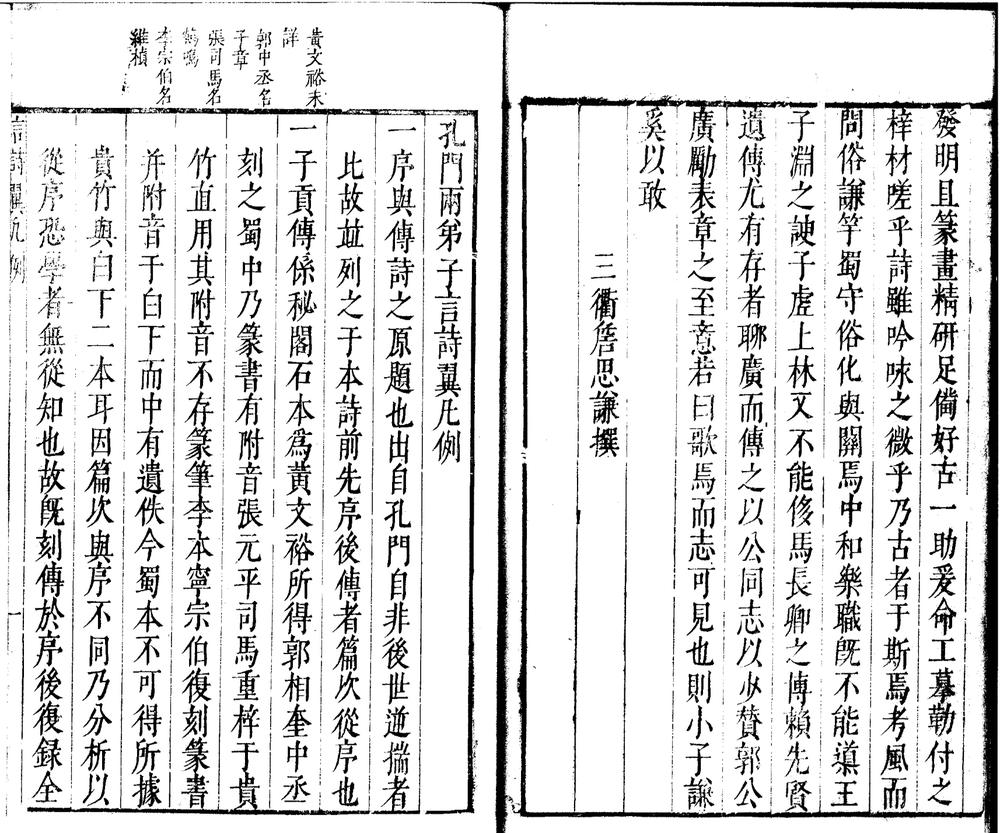 發明且篆畫精研足備好古一助爰命工摹勒付之
梓材嗟乎詩雖吟咏之微乎乃古者于斯焉考風而
問俗謙竽蜀守俗化與關焉中和樂職旣不能㨗王
子淵之諛子虛上林又不能修馬長卿之傳賴先賢
遺傳尤有存者聊廣而傳之以公同志以少贊郭公
廣勵表章之至意若曰歌焉而志可見也則小子謙
奚以敢
三衢詹思謙撰
孔門兩弟子言詩翼凡例
一序與傳詩之原題也出自孔門自非後世逆揣者
比故並列之于本詩前先序後傳者篇次從序也
一子貢傳係秘閣石本爲黃文裕所得郭相奎中丞
刻之蜀中乃篆書有附音張元平司馬重梓于貴
竹直用其附音不存篆筆李本寧宗伯復刻篆書
幷附音于白下而中有遺佚今蜀本不可得所據
貴竹與白下二本耳因篇次與序不同乃分析以
從序恐學者無從知也故旣刻傳於序後復録全
黃文裕未
詳
郭中丞名
子章
張司馬名
鶴鳴
李宗伯名
維楨
言詩翼凡例
一